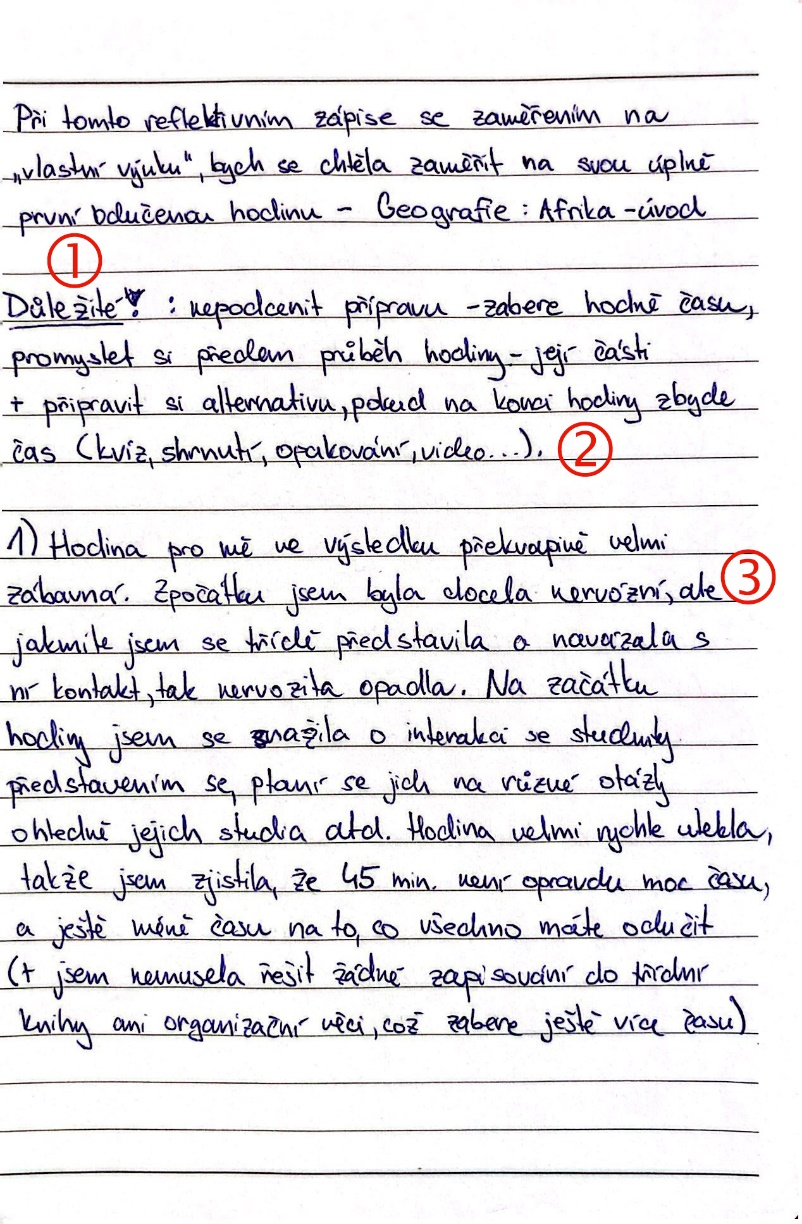 Při tomto reflektivním zápise se zaměřením na
„vlastní výuku", bych se chtěla zaměřit na svou úplně
první odučenou hodinu - Geografie : Afrika - úvod
①
Důležité! : nepodcenit přípravu - zabere hodně času,
promyslet si předem průběh hodiny - její části
+ připravit si alternativu, pokud na konci hodiny zbyde
čas (kvíz, shrnutí, opakování, video...). ②
1) Hodina pro mě ve výsledku překvapivě velmi
zábavná. Zpočátku jsem byla docela nervózní, ale ③
jakmile jsem se třídě představila a navázala s
ní kontakt, tak nervozita opadla. Na začátku
hodiny jsem se snažila o interakci se studenty
představením se, ptaní se jich na různé otázky
ohledně jejich studia atd. Hodina velmi rychle utekla,
takže jsem zjistila, že 45 min. není opravdu moc času,
a ještě méně času na to, co všechno máte odučit
(+ jsem nemusela řešit žádné zapisování do třídní
knihy ani organizační věci, což zabere ještě více času)